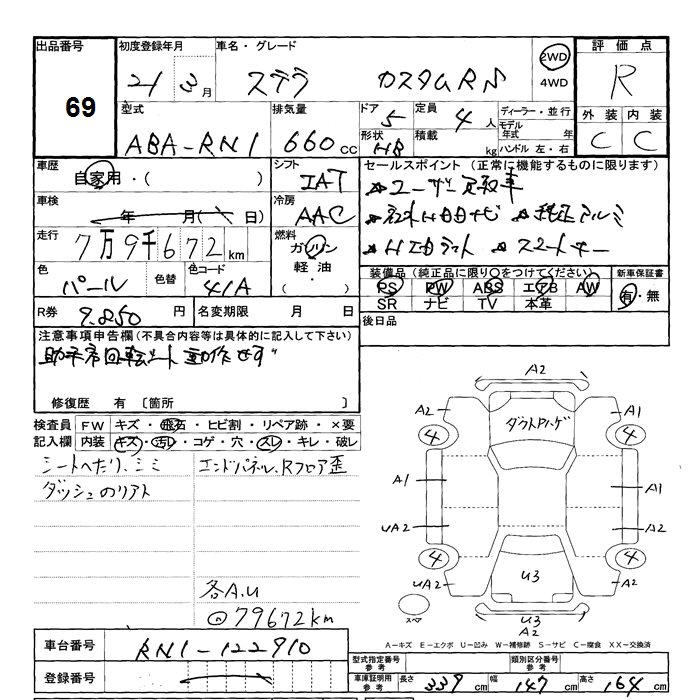 出品番号
69
初度登録年月
21 3月
車名・グレード
ステラ カスタムRS
2WD
4WD
評価点
R
外装 内装
C C
型式
ABA-RN1
排気量
660cc
ドア
5
形状
HB
定員
4人
積載
kg
ディーラー・並行
モデル年式 年
ハンドル 左・右
車歴
自家用・( )
シフト
IAT
車検
年 月( 日)
冷房
AAC
走行
7万9千672km
燃料
ガソリン
軽油・
( )
色
パール
色替
色コード
41A
セールスポイント(正常に機能するものに限ります)
☆ユーザー買取車
☆純正アルミ
☆スマートキー
装備品(純正品に限り○をつけてください)
PS PW ABS エアB AW
SR ナビ TV 本革
新車保証書
有・無
R券
9.850円
名変期限 月 日
後日品
注意事項申告欄(不具合内容等は具体的に記入して下さい)
助手席回転シート動作せず
修復歴 有〔箇所 〕
検査員
記入欄
FW キズ・飛石・ヒビ割・リペア跡・×要
内装 キズ・汚レ・コゲ・穴・スレ・キレ・破レ
シートヘたり、シミ
ダッシュのリアト
エンドパネル、Rフロア歪
各A.U
@79672km
A2
A2 A1
4 4
A1 A1
UA2 A2
4 4
UA2 A2
U3
U3
A2
スペア
A-キズ E-エクボ U-凹み W-補修跡 S-サビ C-腐食 XX-交換済
車台番号
RN1-122910
登録番号
型式指定番号
参考
類別区分番号
参考
車庫証明用
参考
長さ 339cm 幅 147cm 高さ 164cm